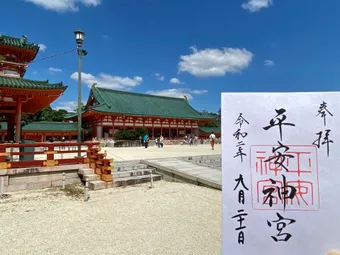 奉拝
平安神宮
平安神宮
令和三年 九月二十一日